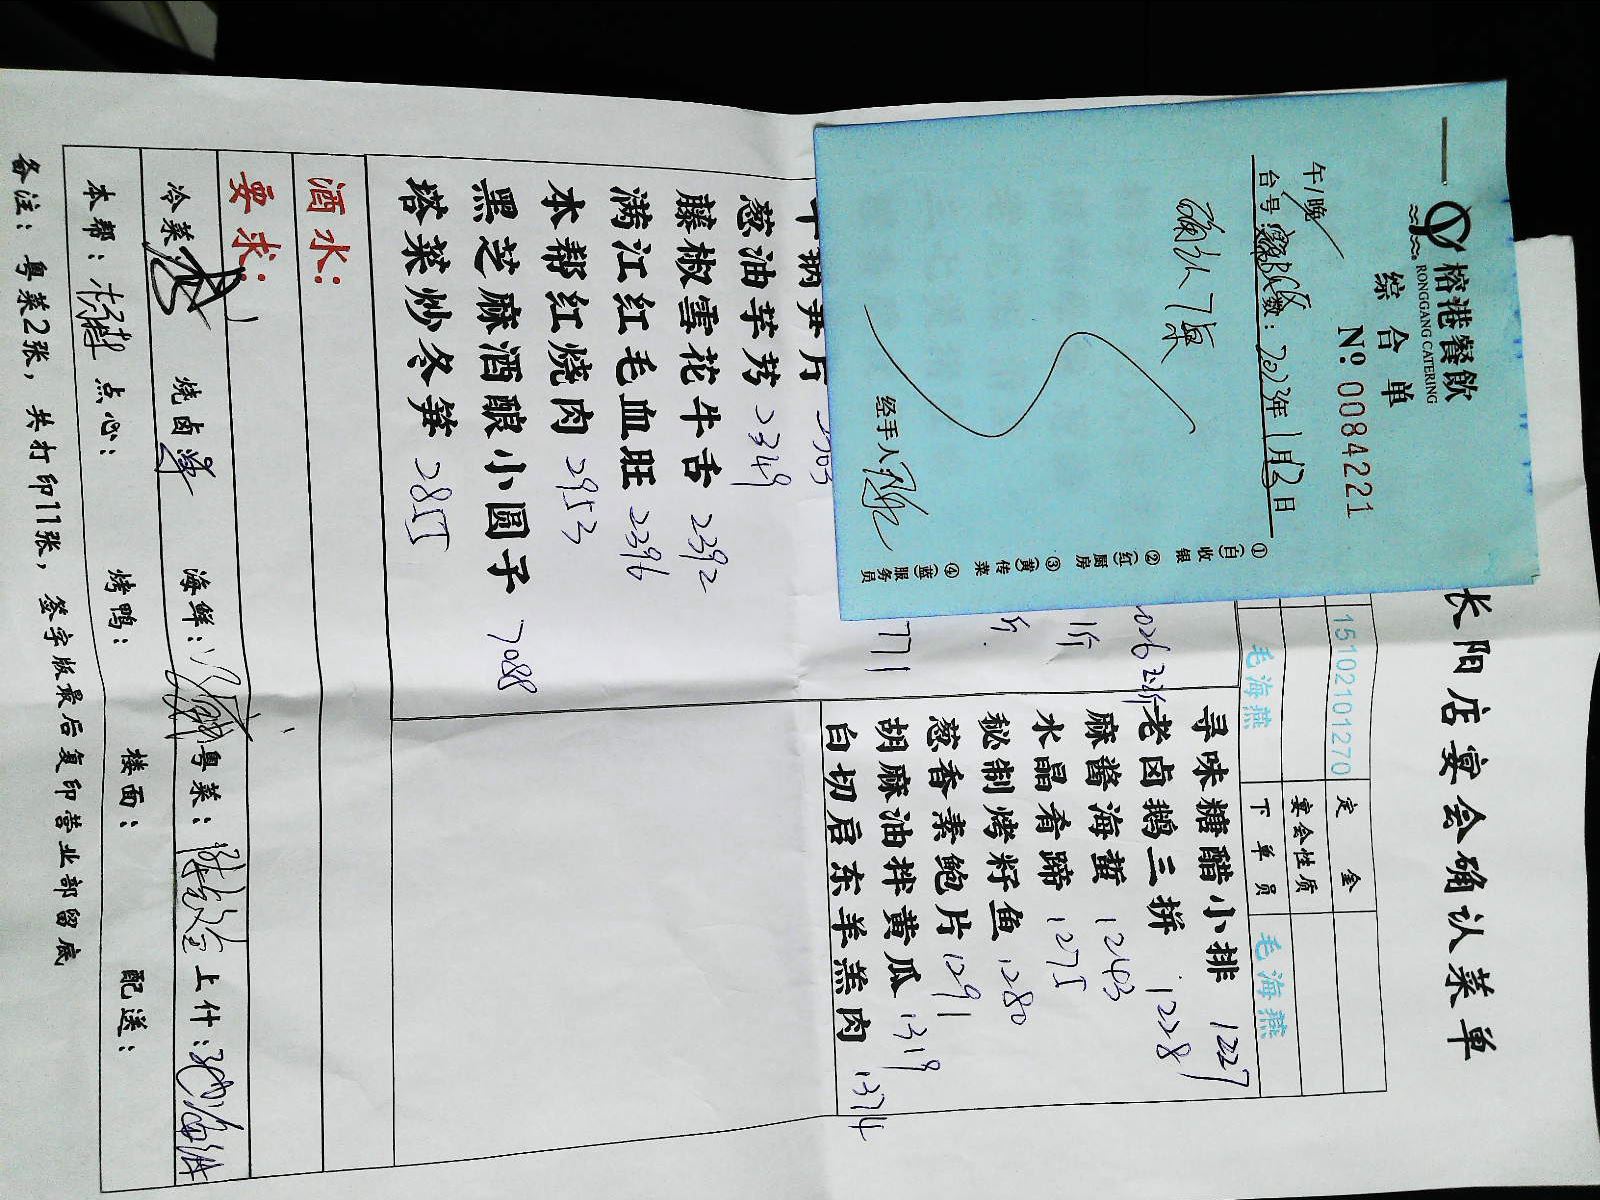 长阳店宴会确认菜单
榕港餐飲
RONGGANG CATERING
综合单
Nº 0084221
午/晚
台号 数: 2023年1月2日
①(白)收银 ②(红)厨房 ③(黄)传菜 ④(蓝)服务员
经手人
15102101270 定金
宴会性质
毛海燕 下单员 毛海燕
寻味糖醋小排 1227
老卤鹅三拼 1228
麻酱海蜇 1243
水晶肴蹄 1275
秘制烤籽鱼 1280
葱香素鲍片 1291
胡麻油拌黄瓜 1319
白切启东羊羔肉 1374
葱油芋艿 2349
藤椒雪花牛舌 2392
满江红毛血旺 2396
本帮红烧肉 2953
黑芝麻酒酿小圆子 7088
塔菜炒冬笋 2855
酒水：
要求：
冷菜 烧卤 海鲜： 粤菜： 上什：
本帮： 点心： 烤鸭： 楼面： 配送：
备注：粤菜2张，共打印11张，签字版最后复印营业部留底